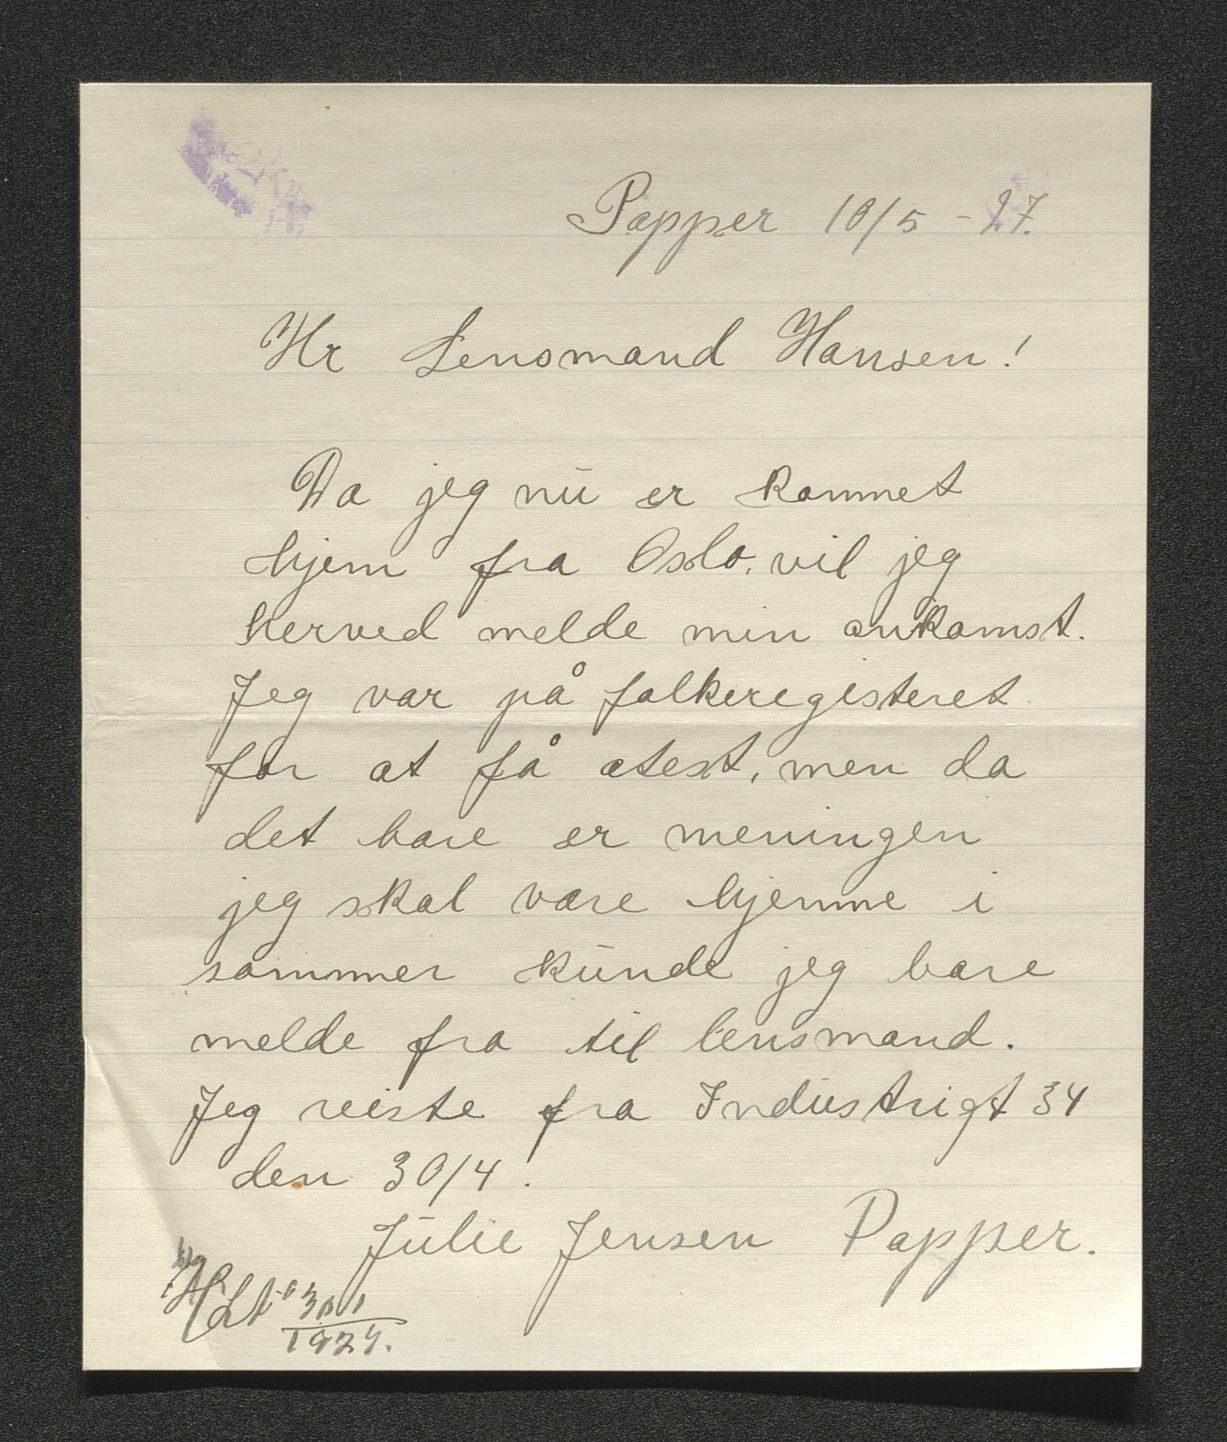 Papper 10/5 - 27.
Hr Lensmand Hansen!
Da jeg nu er kommet
hjem fra Oslo. vil jeg
herved melde min ankomst.
Jeg var på folkeregisteret
for at få atest, men da
det bare er meningen
jeg skal være hjemme i
sommer kunde jeg bare
melde fra til lensmand.
Jeg reiste fra Industrigt 34
den 30/4.
Julie Jensen Papper.